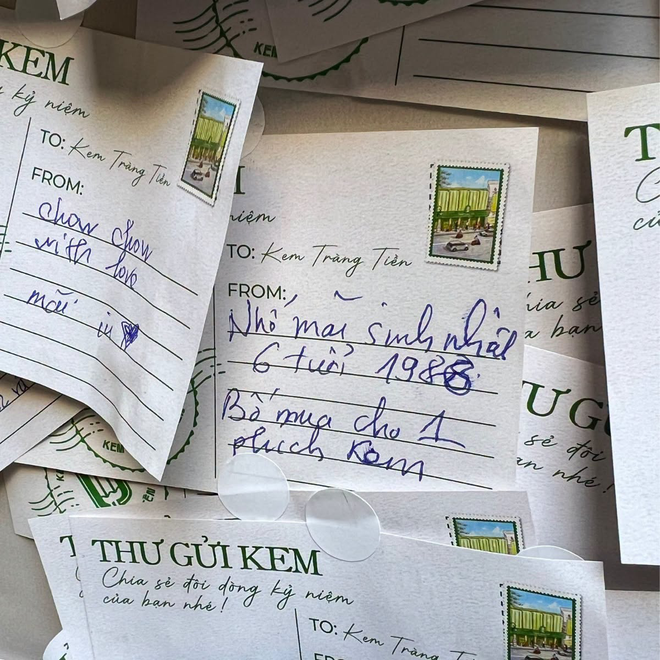 KEM
kỷ niệm
TO: Kem Tràng Tiền
FROM:
chow chow
with love
mãi iu
niệm
TO: Kem Tràng Tiền
FROM:
Nhớ mãi sinh nhật
6 tuổi 1988
Bố mua cho 1
phích Kem
HƯ
chia sẻ
a bạn
T
củ
Ư GỬ
sẻ đôi
bạn nhé!
KEM
THƯ GỬI KEM
Chia sẻ đôi dòng kỷ niệm
của bạn nhé!
TO: Kem Tràng Tiền
FROM: